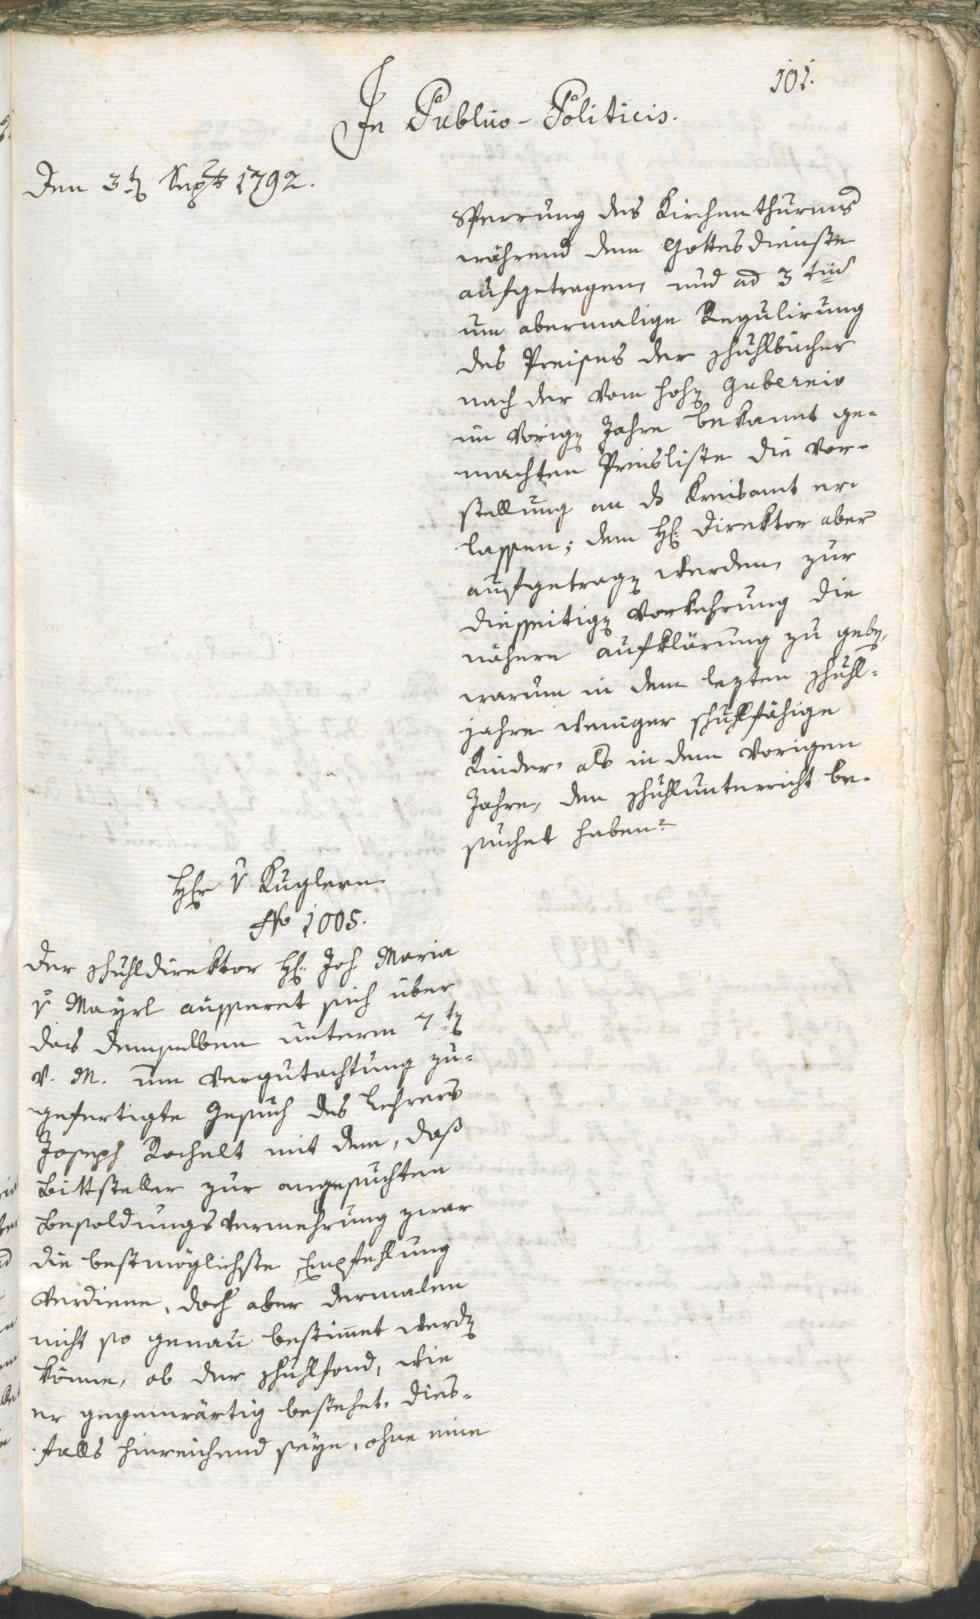 101.
In Publico-Politicis.
Den 3tꝫ Septb 1792.
Sperrung des Kirchenthurms
während dem Gottesdienste
aufgetragen, und ad 3tium
um abermalige Regulirung
des Preises der Schuhlbücher
nach der vom hohꝫ Gubernio
im vorigꝫ Jahre bekannt ge-
machten Preisliste die Vor-
stellung an ds Kreisamt er-
lassen; dem H: Direktor aber
aufgetragꝫ werden, zur
diesseitigꝫ Vorkehrung die
nähere Aufklärung zu gebꝫ,
warum in dem lezten Schuhl-
jahre weniger schuhlfähige
Kinder, als in dem vorigen
Jahre, den Schuhlunterricht be-
suchet haben?
Hr v Kuglern
No 1005.
Der Schuhldirektor H: Joh Maria
v Mayrl äusseret sich über
das demselben unterm 7tꝫ
v. M. um Vergutachtung zu-
gefertigte Gesuch des Lehrers
Joseph Rochelt mit dem, daß
Bittsteller zur angesuchten
Besoldungsvermehrung zwar
die bestmöglichste Empfehlung
verdiene, doch aber dermalen
nicht so genau bestimmet werdꝫ
könne, ob der Schuhlfond, wie
er gegenwärtig bestehet, dies-
falls hinreichend seye, ohne eine